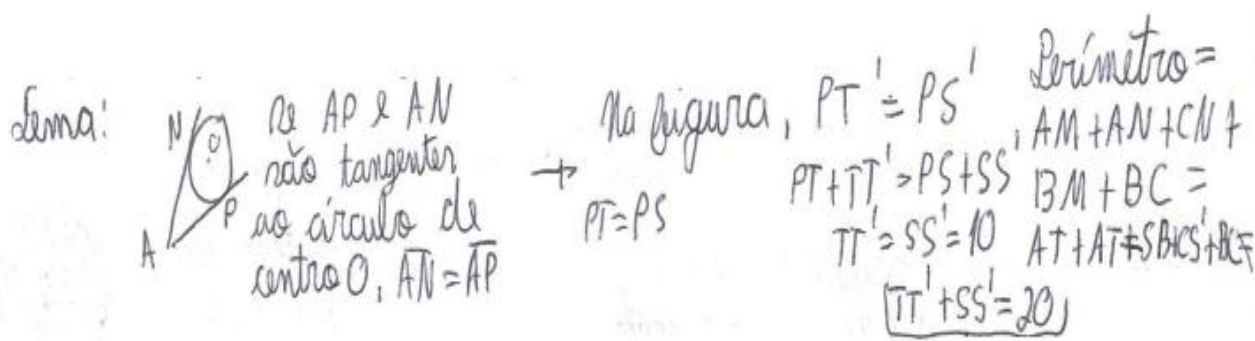 Lema:
N
O
P
A
Se AP e AN
são tangentes
ao círculo de
centro O, AN = AP
→
Na figura, PT' = PS'
PT = PS
PT + TT' = PS + SS',
TT' = SS' = 10
TT' + SS' = 20
Perímetro =
AM + AN + CN +
BM + BC =
AT + AT' + SB + CS' + BC =